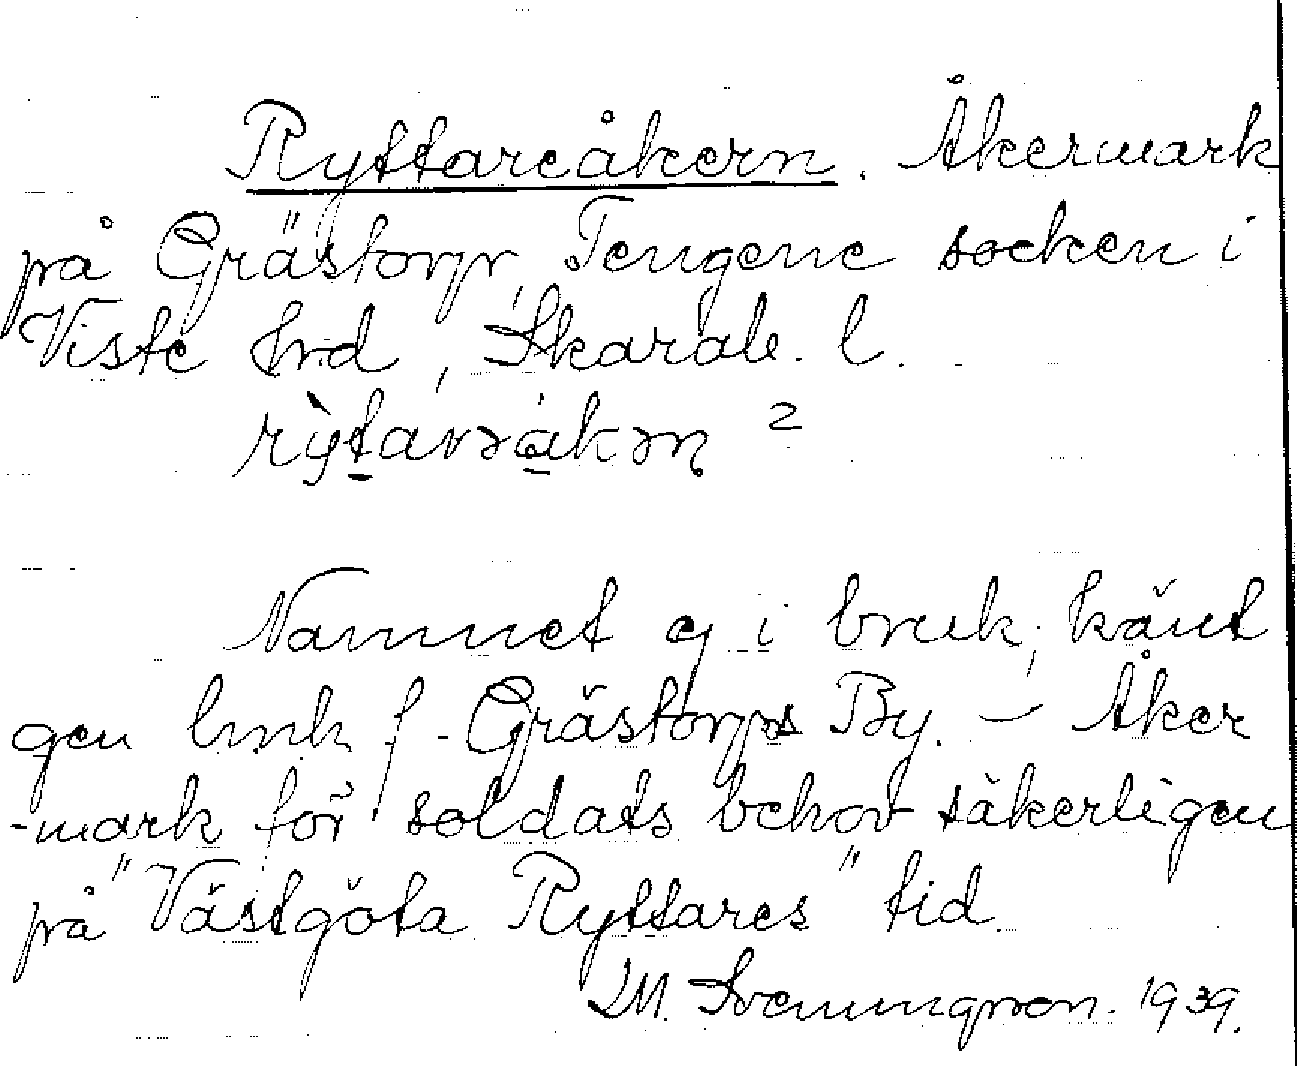 Ryttareåkern. Åkermark
på Grästorp, Tengene socken i
Viste hrd, Skarab. l.
Namnet ej i bruk; känt
gen f. Grästorps By. — Åker
-mark för soldats behov säkerligen
på "Västgöta Ryttares" tid.
M. 1939.